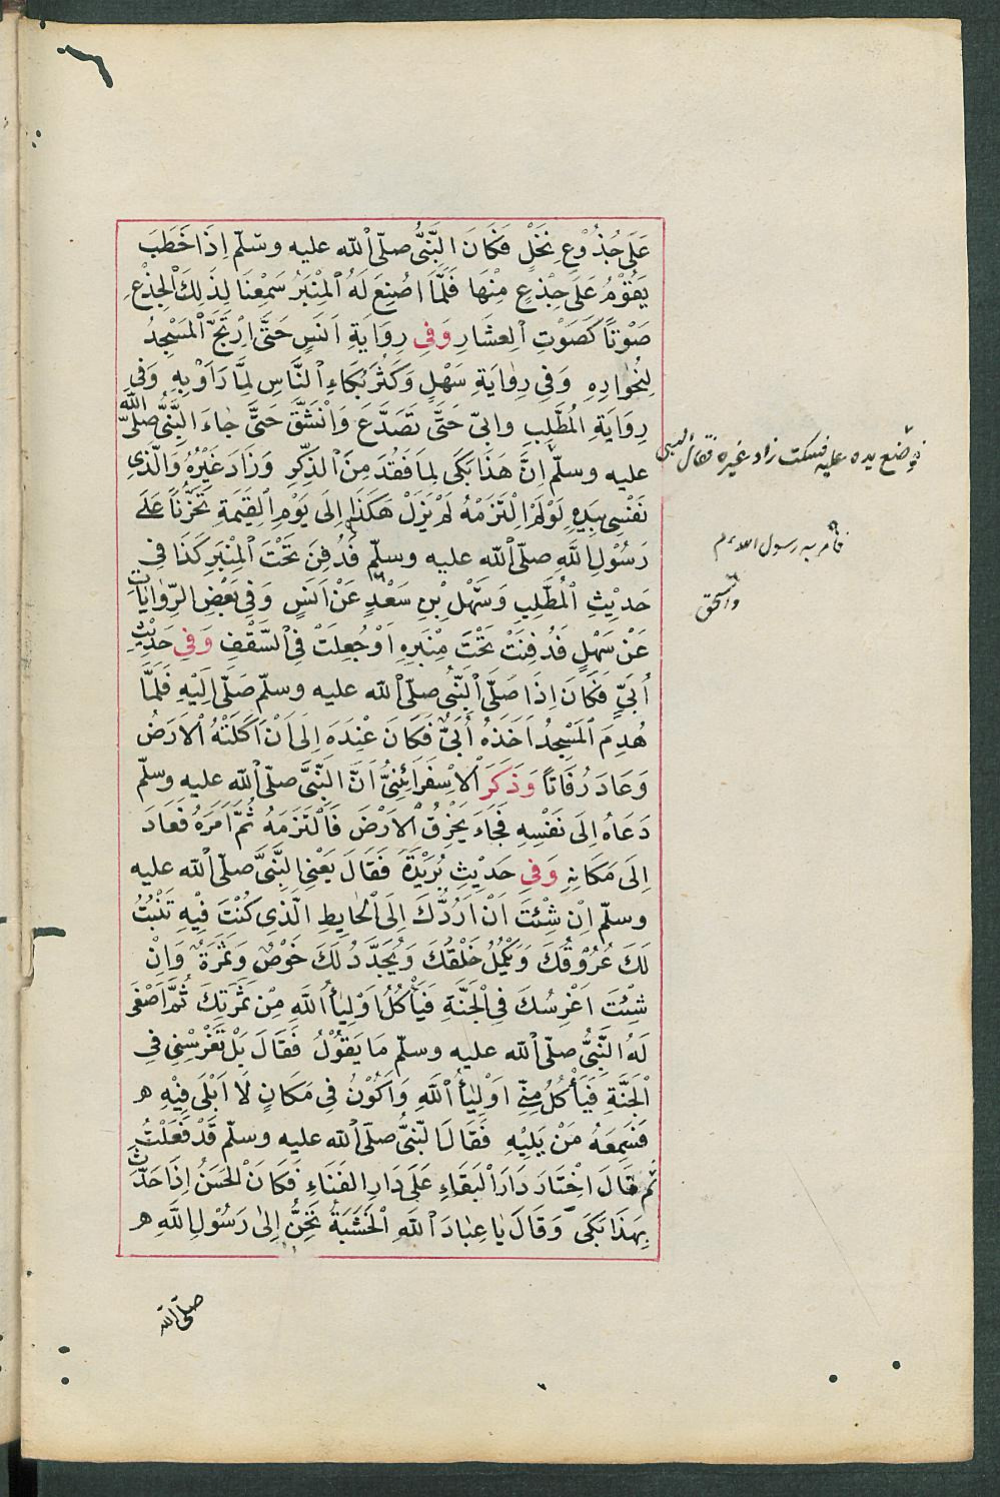 عَلَى جُذُوْعِ نَخْلٍ فَكَانَ النَّبِىُّ صلّى اللّه عليه وسلّم اِذَا خَطَبَ
يَقُوْمُ عَلَى جِذْعٍ مِنْهَا فَلَمَّا صُنِعَ لَهُ الْمِنْبَرُ سَمِعْنَا لِذَلِكَ الْجِذْعِ
صَوْتًا كَصَوْتِ الْعِشَارِ وَفِى رِوَايَةِ اَنَسٍ حَتَّى ارْتَجَّ الْمَسْجِدُ
لِخُوَارِهِ وَفِى رِوَايَةِ سَهْلٍ وَكَثُرَ بُكَاءُ النَّاسِ لِمَا رَاَوْ بِهِ وَفِى
رِوَايَةِ الْمُطَّلِبِ وابىّ حَتَّى تَصَدَّعَ وَانْشَقَّ حَتَّى جَاءَ النَّبِىُّ صلّى اللّه
عليه وسلّم اِنَّ هَذَا بَكَى لِمَا فَقَدَ مِنَ الذِّكْرِ وَزَادَ غَيْرُهُ وَالَّذِى
نَفْسِى بِيَدِهِ لَوْ لَمْ اَلْتَزِمْهُ لَمْ يَزَلْ هَكَذَا اِلَى يَوْمِ الْقِيَمَةِ تَحَزُّنًا عَلَى
رَسُوْلِ اللَّهِ صلّى اللّه عليه وسلّم فَدُفِنَ تَحْتَ الْمِنْبَرِ كَذَا فِى
حَدِيْثِ الْمُطَّلِبِ وَسَهْلِ بْنِ سَعْدٍ عَنْ اَنَسٍ وَفِى بَعْضِ الرِّوَايَاتِ
عَنْ سَهْلٍ فَدُفِنَتْ تَحْتَ مِنْبَرِهِ اَوْ جُعِلَتْ فِى السَّقْفِ وَفِى حَدِيْثِ
اُبَىٍّ فَكَانَ اِذَا صَلَّى النَّبِىُّ صلّى اللّه عليه وسلّم صَلَّى اِلَيْهِ فَلَمَّا
هُدِمَ الْمَسْجِدُ اَخَذَهُ اُبَىٌّ فَكَانَ عِنْدَهُ اِلَى اَنْ اَكَلَتْهُ الْاَرَضُ
وَعَادَ رُفَاتًا وَذَكَرَ الْاِسْفَرَائِنِىُّ اَنَّ النَّبِىَّ صلّى اللّه عليه وسلّم
دَعَاهُ اِلَى نَفْسِهِ فَجَاءَ يَخْرِقُ الْاَرْضَ فَالْتَزَمَهُ ثُمَّ اَمَرَهُ فَعَادَ
اِلَى مَكَانِهِ وَفِى حَدِيْثِ بُرَيْدَةَ فَقَالَ يَعْنِى النَّبِىَّ صلّى اللّه عليه
وسلّم اِنْ شِئْتَ اَنْ اَرُدَّكَ اِلَى الْحَايِطِ الَّذِى كُنْتَ فِيْهِ تَنْبُتُ
لَكَ عُرُوْقُكَ وَيَكْمُلُ خَلْقُكَ وَيُجَدَّدُ لَكَ خَوْصٌ وَثَمَرَةٌ وَاِنْ
شِئْتَ اَغْرِسُكَ فِى الْجَنَّةِ فَيَاْكُلُ اَوْلِيَاُ اللَّهِ مِنْ ثَمَرَتِكَ ثُمَّ اَصْغَى
لَهُ النَّبِىُّ صلّى اللّه عليه وسلّم مَا يَقُوْلُ فَقَالَ بَلْ تَغْرِسُنِى فِى
الْجَنَّةِ فَيَاْكُلُ مِنِّى اَوْلِيَاُ اللَّهِ وَاَكُوْنُ فِى مَكَانٍ لَا اَبْلَى فِيْهِ ه
فَسَمِعَهُ مَنْ يَلِيْهِ فَقَالَ النّبىُّ صلّى اللّه عليه وسلّم قَدْ فَعَلْتُ
ثم قَالَ اخْتَارَ دَارَ الْبَقَاءِ عَلَى دَارِ الْفَنَاءِ فَكَانَ الْحَسَنُ اِذَا حَدَّثَ
بِهَذَا بَكَى وَقَالَ يَا عِبَادَ اللَّهِ الْخَشَبَةُ تَحِنُّ اِلَى رَسُوْلِ اللَّهِ ه
صلّى اللّه
فوضع يده عليه فسكت زاد غيره فقال النبى
فامر به رسول الله صم
واسحق